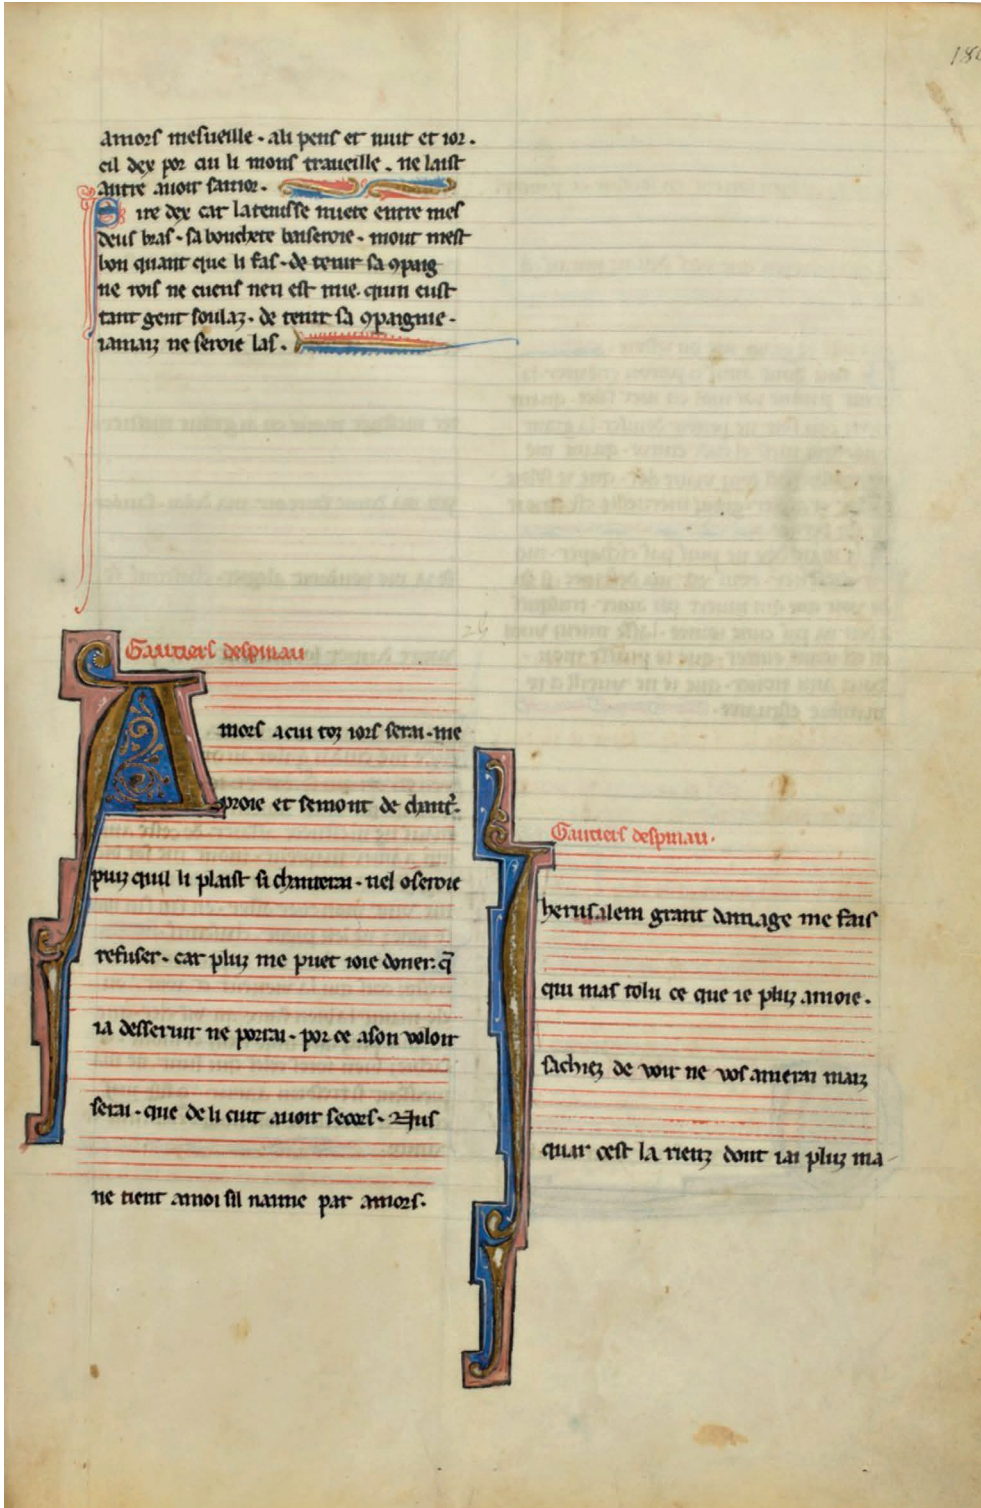 amors mesueille · ali pens et nuit et ior ·
cil dex por cui li mons traueille · ne laist
autre auoir samor ·
Sire dex car latenisse nuete entre mes
deus bras · sa bouchete baiseroie · mout mest
bon quant que li fas · de tenir sa ꝯpaig
ne rois ne cuens nen est mie · quin eust
tant gent soulaz · de tenir sa ꝯpaignie ·
iamaiz ne seroie las ·
Gautiers despinau
Amors acui toz iors serai · me
proie et semont de chant̉ ·
puiz quil li plaist si chanterai · nel oseroie
refuser · car pluz me puet ioie doner · q̃
ia desseruir ne porrai · por ce ason voloir
serai · que de li cuit auoir secors · Nus
ne tient amoi sil naime par amors ·
Gautiers despinau ·
Iherusalem grant damage me fais
qui mas tolu ce que ie pluz amoie ·
sachiez de voir ne vos amerai maiz
quar cest la rienz dont iai pluz ma